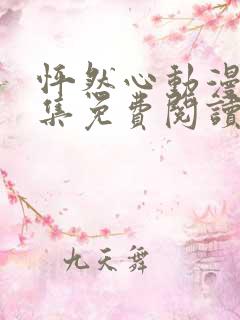 怦然心動漫
集免費閱讀
九天舞